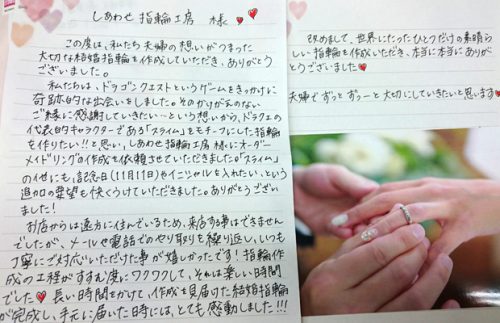 しあわせ 指輪工房 様
この度は、私たち夫婦の想いがつまった
大切な結婚指輪を作成していただき、ありがとう
ございました。
私たちは、ドラゴンクエストというゲームをきっかけに
奇跡的な出会いをしました。そのかけがえのない
ご縁に感謝していきたい〜という想いから、ドラクエの
代表的キャラクターである「スライム」をモチーフにした指輪
を作りたい!!と思い、しあわせ指輪工房様にオーダー
メイドリングの作成を依頼させていただきました。「スライム」
の他にも、記念日(11月11日)やイニシャルを入れたい、という
追加の要望も快くうけていただきました。ありがとうござい
ました!
お店からは遠方に住んでいるため、来店する事はできません
でしたが、メールや電話でのやり取りを繰り返し、いつも
丁寧にご対応いただけた事が嬉しかったです!指輪作
成の工程がすすむ度にワクワクして、それは楽しい時間
でした♥長い時間をかけて、作成を見届けた結婚指輪
が完成し、手元に届いた時には、とても感動しました!!!
改めまして、世界にたったひとつだけの素晴ら
しい指輪を作成いただき、本当に本当にありが
とうございました♥
夫婦でずっとずっーと大切にしていきたいと思います♥